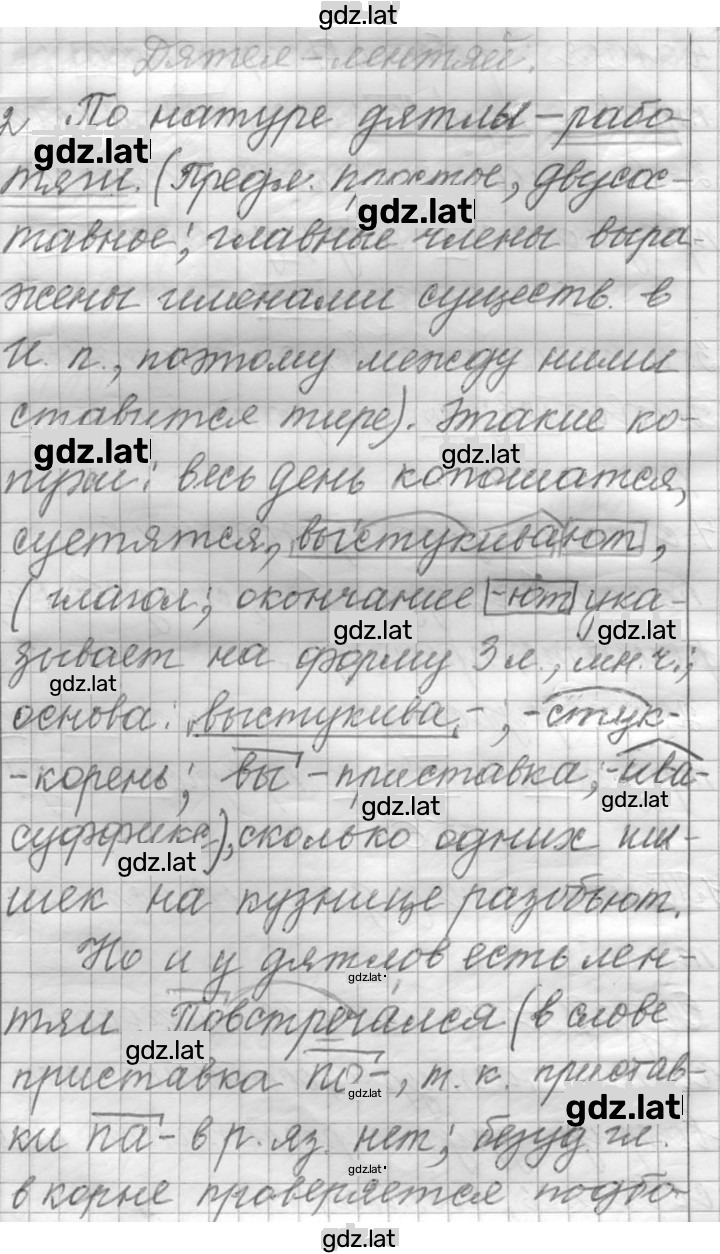 gdz.lat
Дятел-лентяй.
2 По натуре дятлы – рабо
gdz.lat
тяги. (Предл. простое, двусос-
gdz.lat
тавное; главные члены выра-
жены именами существ. в
И. п., поэтому между ними
ставится тире). Этакие ко-
gdz.lat
gdz.lat
пуши: весь день копошатся,
суетятся, выстукивают,
(глагол; окончание -ют ука-
gdz.lat
gdz.lat
зывает на форму 3 л., мн.ч.;
gdz.lat
основа: выстукива-; -стук-
-корень; вы-приставка; -ива-
gdz.lat
gdz.lat
суффикс), сколько одних ши-
gdz.lat
шек на кузнице разобьют.
Но и у дятлов есть лен-
gdz.lat
тяи Повстречался (в слове
gdz.lat
приставка по-, т. к. пристав-
gdz.lat
gdz.lat
ки па- в р. яз. нет; безуд. гл.
gdz.lat
в корне проверяется подбо
gdz.lat